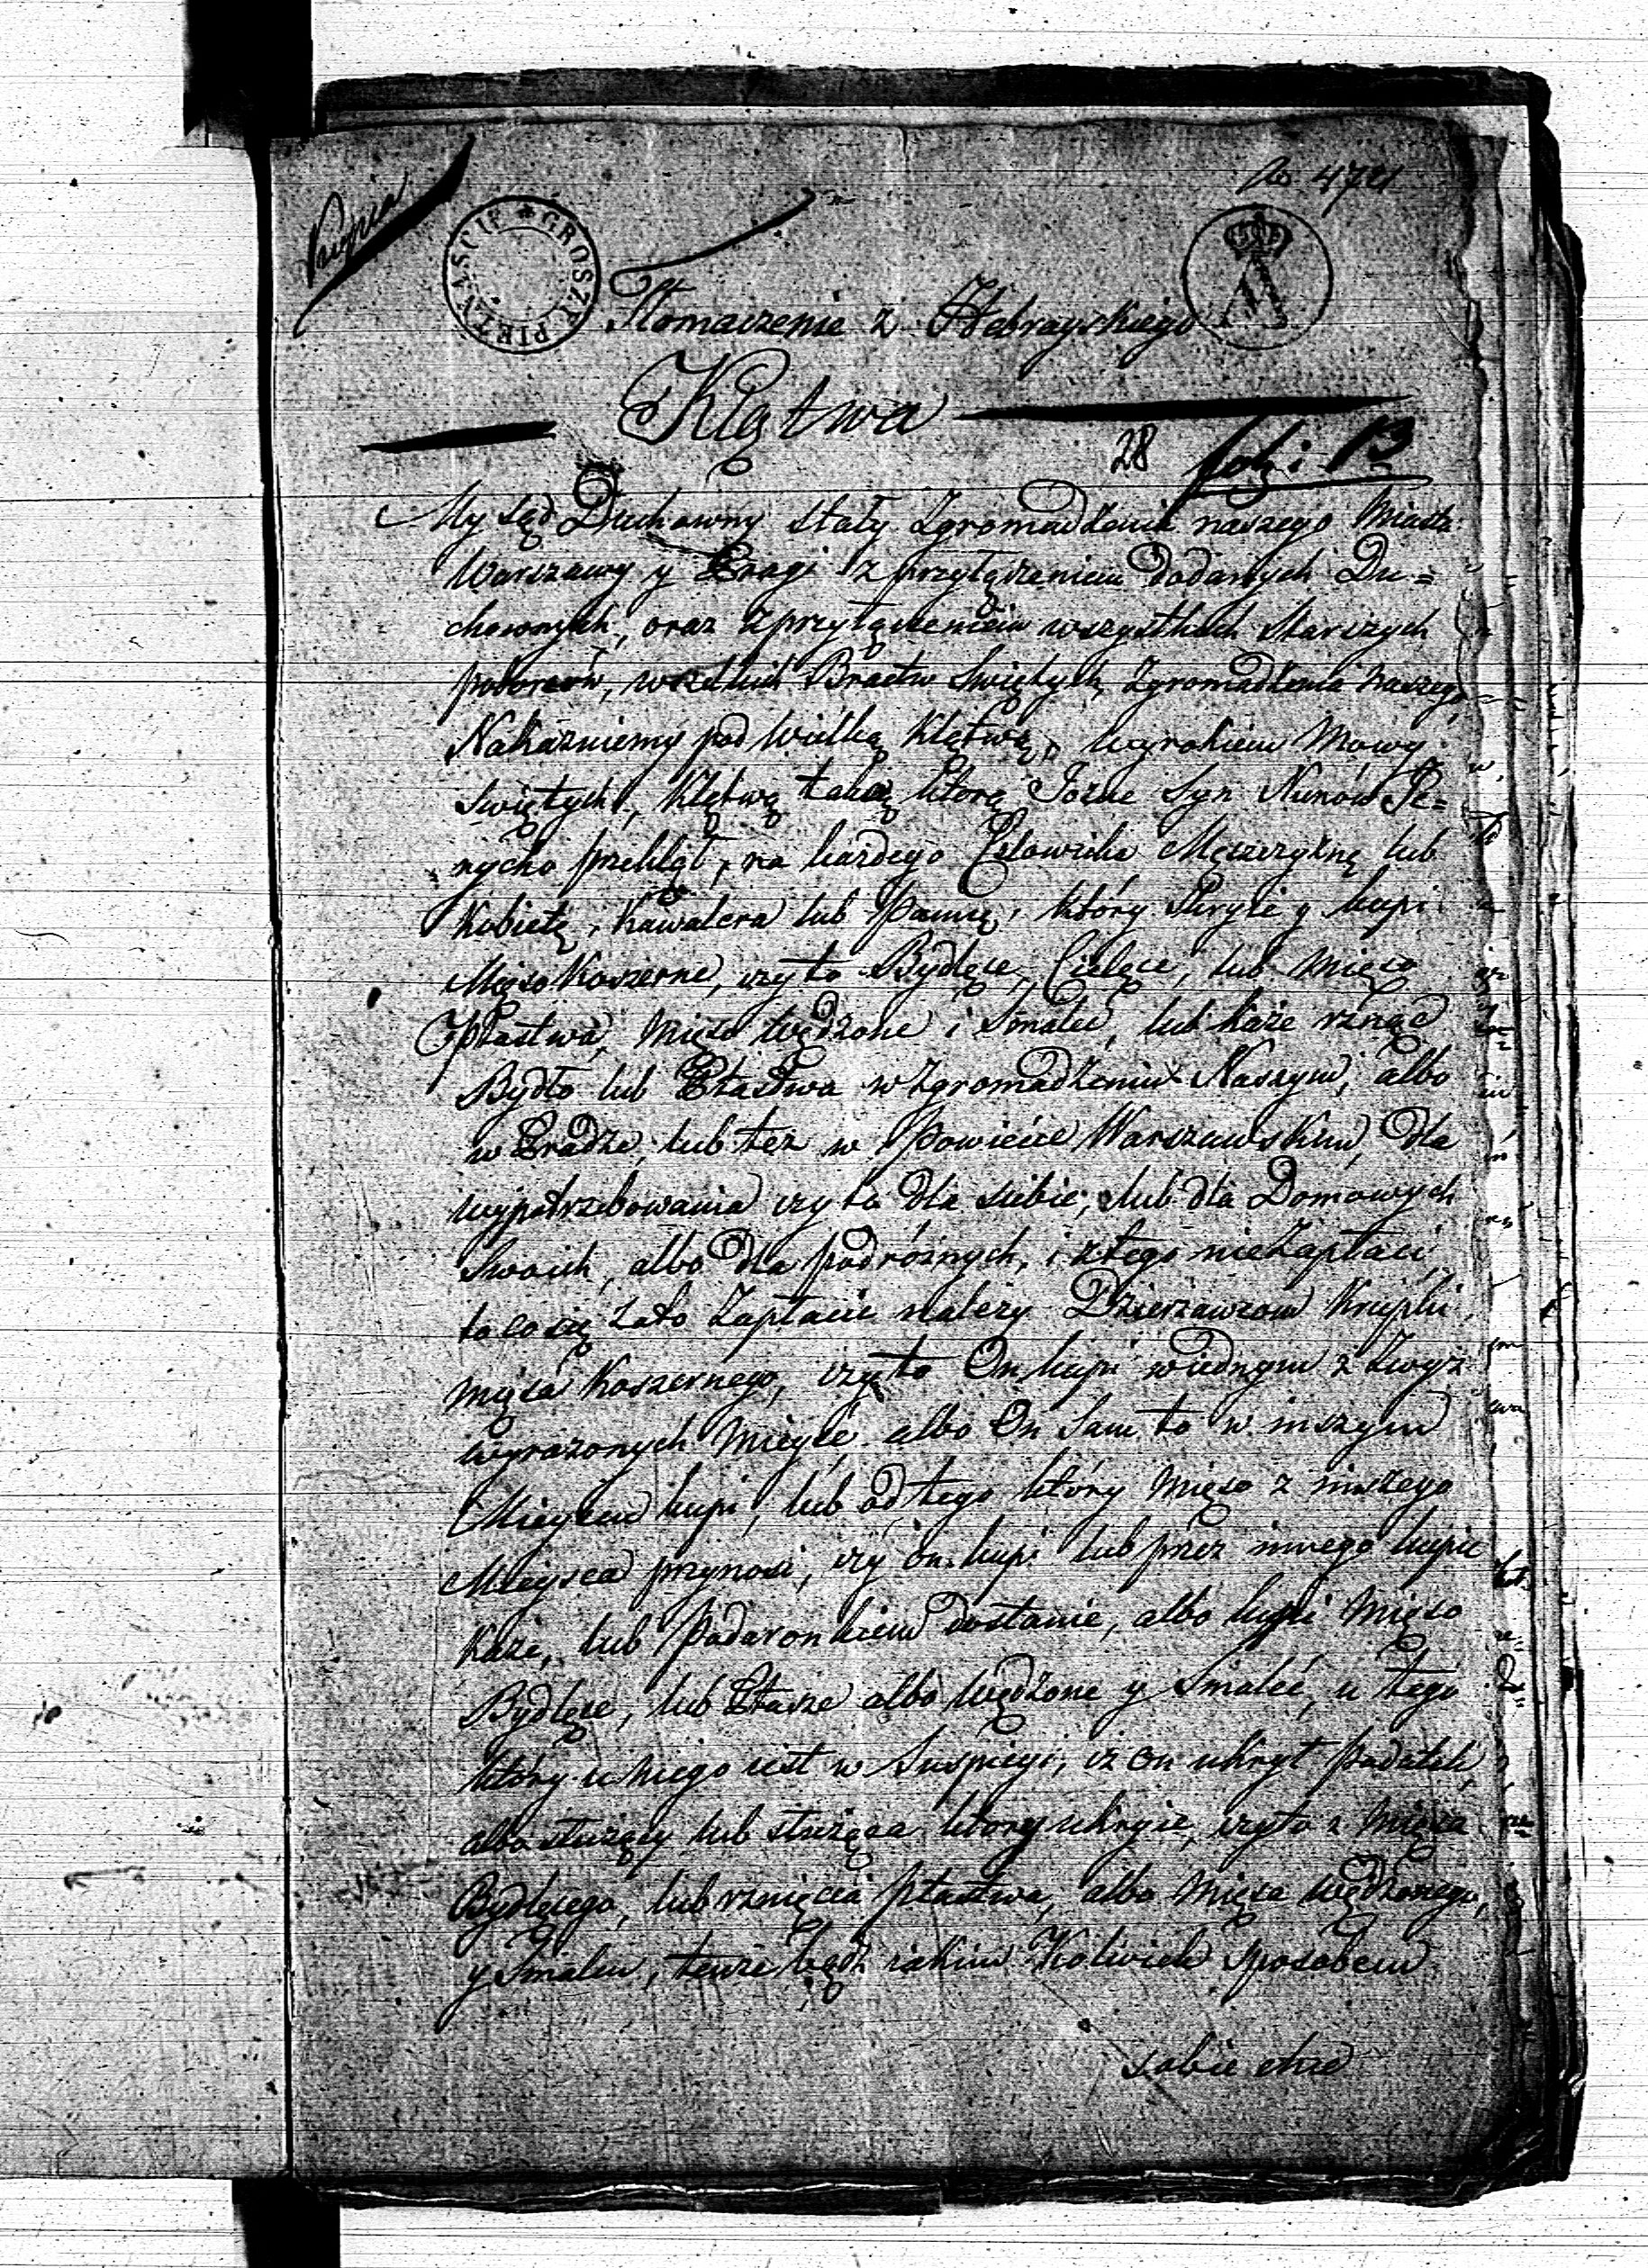 Kopia
No 4721
GROSZY PIĘTNAŚCIE
Tłomaczenie z Hebrayskiego
Klątwa
28 fol: i 13
My Sąd Duchowny stały Zgromadzenia naszego Miasta
Warszawy y Pragi z przyłączeniem dodanych Du=
chownych, oraz z przyłączeniem wszystkich Starszych
poborców, wszelkich Bractw Świętych Zgromadzenia Naszego,
Nakazuiemy pod wielką Klątwą, wyrokiem Mowy
Świętych, klątwą taką którą Jozue Syn Nunów Je=
rycho przeklął, na każdego Człowieka Męszczyznę lub
Kobietę, Kawalera lub Pannę, który skryie y kupi
Mięso Koszerne, czy to Bydlęce, Cielęce, lub Mięso
Ptastwa, Mięso wędzone i Smalec, lub każe rznąć
Bydło lub Ptastwa w Zgromadzeniu Naszym, albo
w Pradze, lub też w Powiecie Warszawskim, dla
wypotrzebowania czy to dla siebie, lub dla Domowych
Swoich, albo dla podróżnych, i z tego nie zapłaci
to co się za to zapłacić należy Dzierżawcom Krupki
mięsa Koszernego, czy to On kupi w iednym z zwyż
wyrażonych Mieysc, albo On Sam to w inszym
Mieyscu kupi, lub od tego który Mięso z inszego
Mieysca przynosi, czy on kupi lub przez innego kupić
każe, lub podaronkiem dostanie, albo kupi Mięso
Bydlęce, lub Ptasze albo wędzone y Smalec, u tego
który u niego iest w Suspicyi, iż on ukrył podatek,
albo służący lub służąca który ukryie, czyto z Mięsa
Bydlęcego, lub rznięcia ptastwa, albo Mięsa wędzonego,
y Smalcu, tenże bądź iakim Kolwiek sposobem
sobie chce